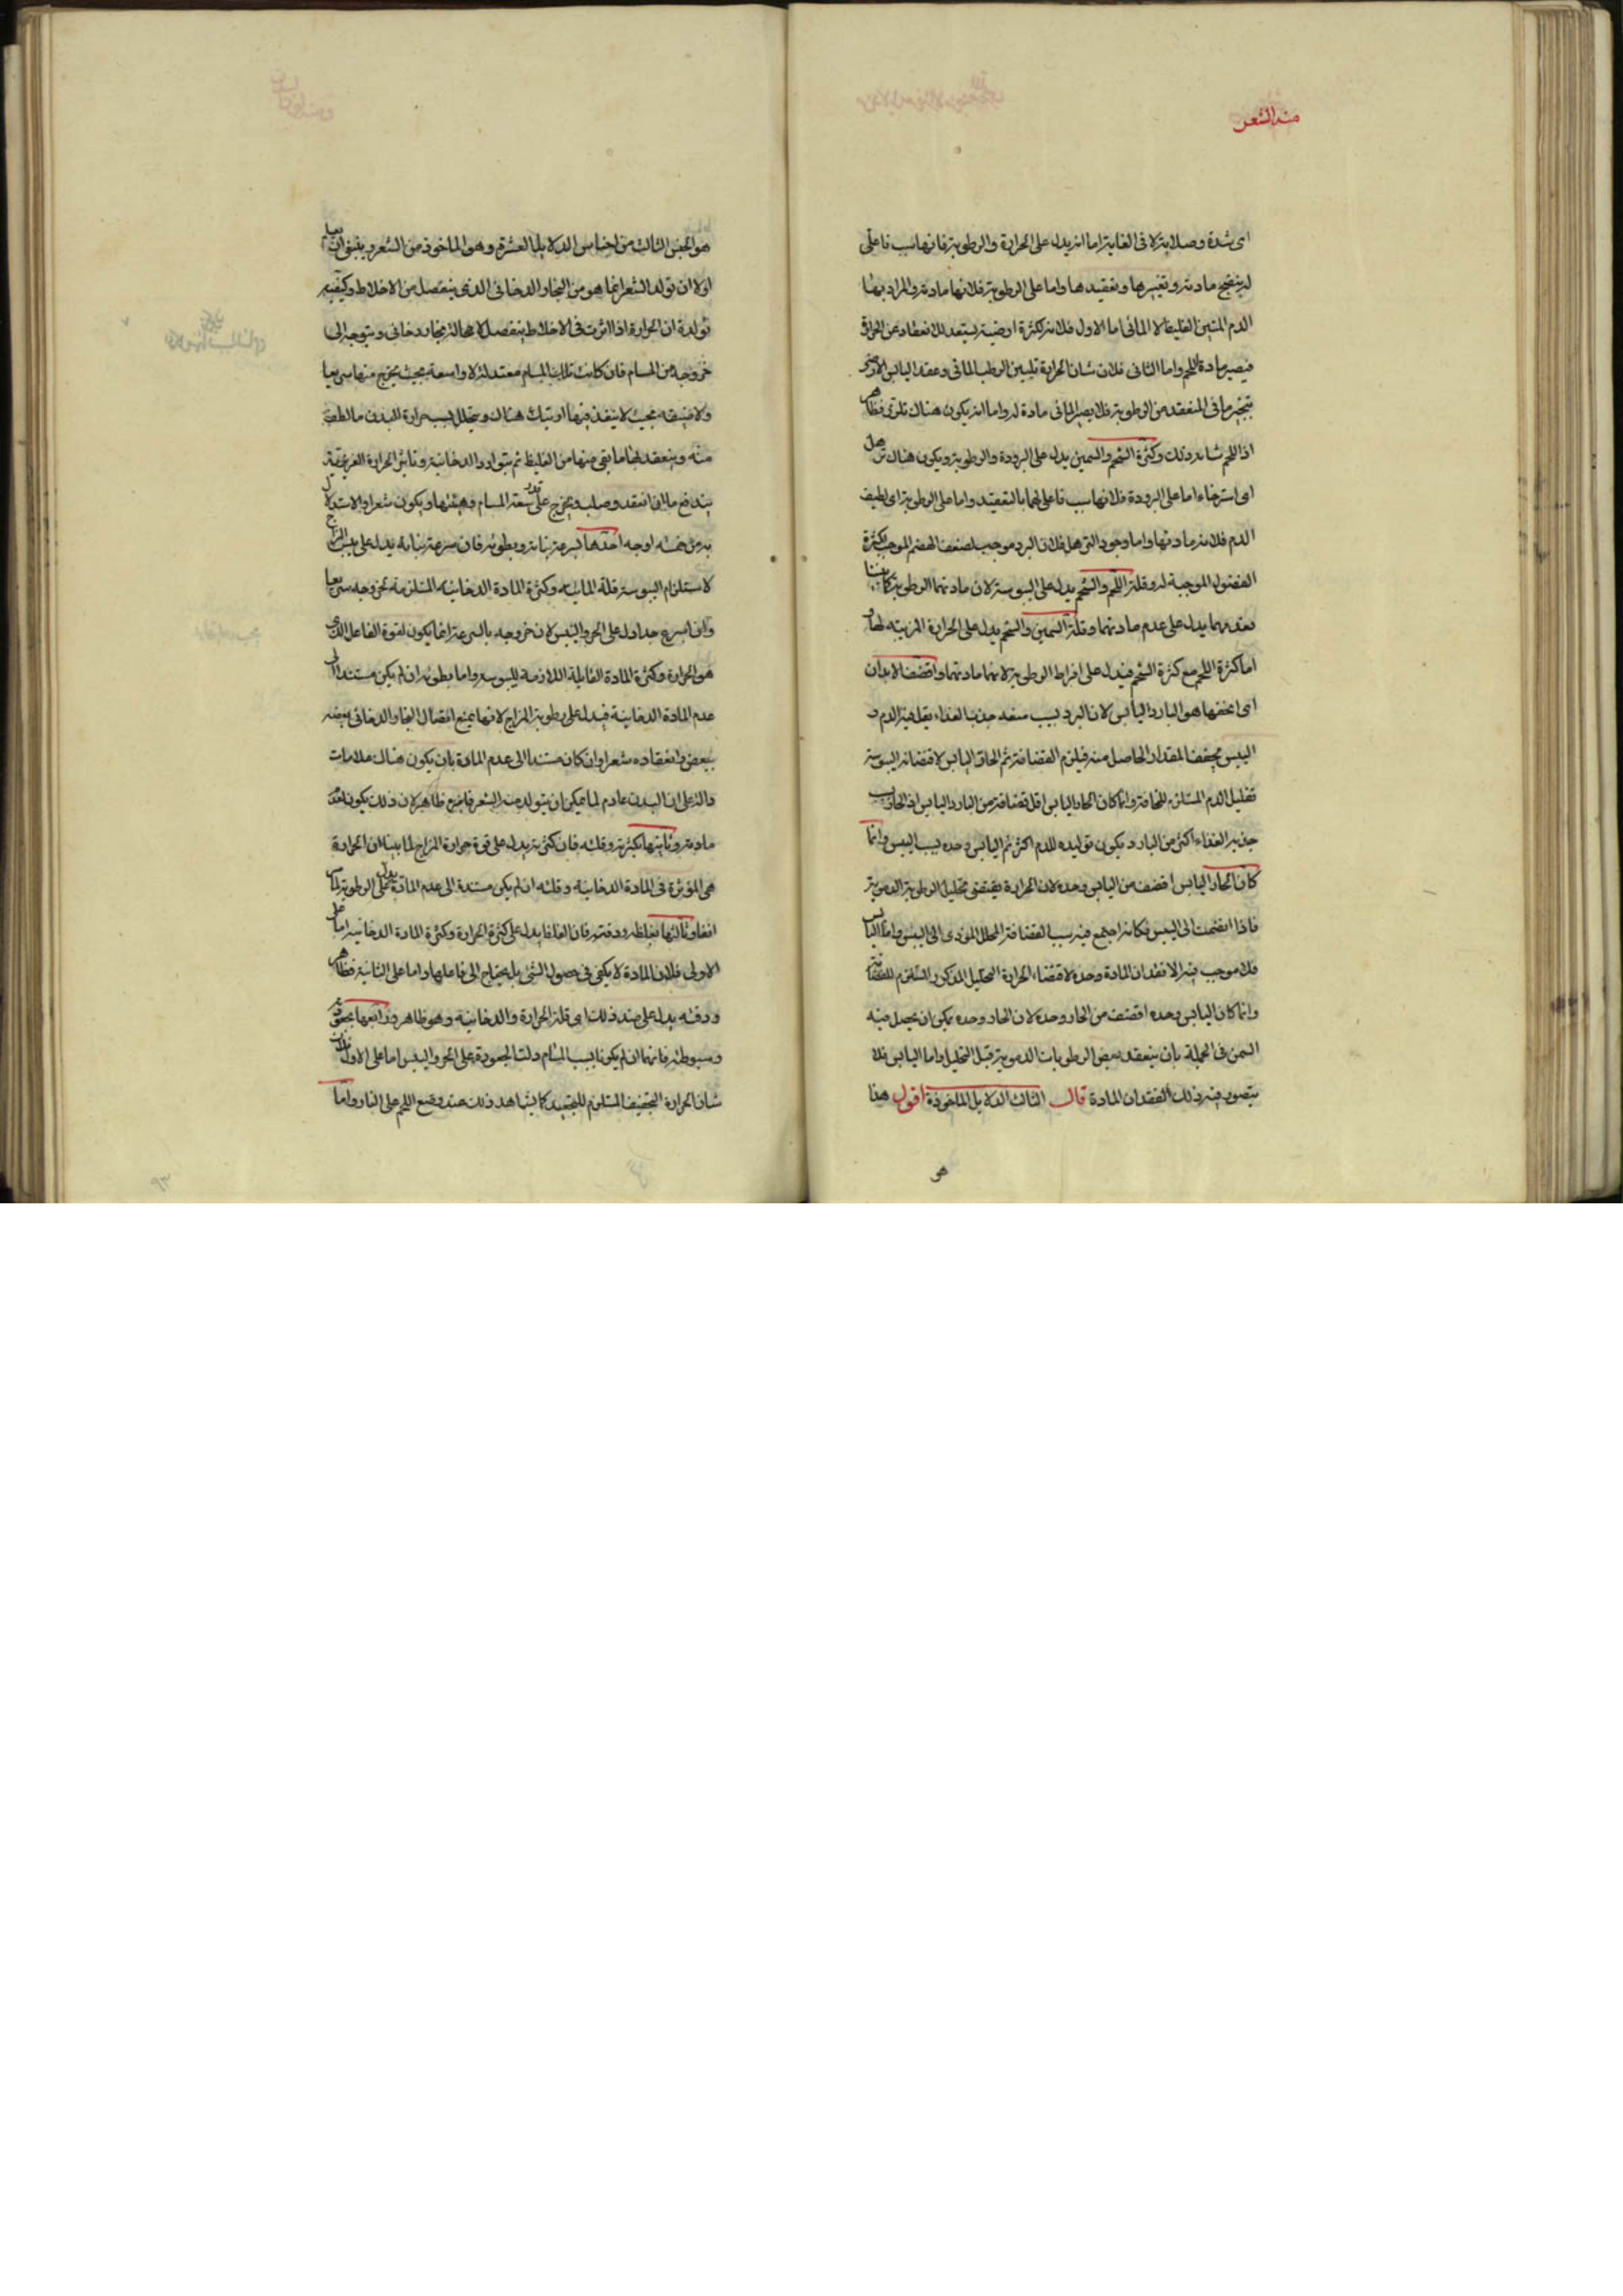 منه الشعر
اى شدة وصلابة لا فى الغاية اما انه يدل على الحرارة والرطوبة فانها سبب فاعلى
لنضج مادته وتغييرها وتعقيدها واما على الرطوبة فلانها مادته والمراد بها
الدم المتين الغليظ لا المائى اما الاول فلانه لكثرة ارضيته يستعد للانعقاد عن الحرارة
فيصير مادة للحم واما الثانى فلان شان الحرارة تليين الرطب المائى وعقد اليابس الارضى
بتبخير ما فى المنعقد من الرطوبة فلا يصير المائى مادة له واما انه يكون هناك تلزز فظاهر
اذ اللحم شانه ذلك وكثرة الشحم والسمين يدل على البرودة والرطوبة ويكون هناك ترهل
اى استرخاء اما على البرودة فلانها سبب فاعلى لهما بالتعقيد واما على الرطوبة اى لطيف
الدم فلانه مادتها واما وجود الترهل فلان البرد موجب لضعف الهضم الموجب لكثرة
الفضول الموجبة له وقلة اللحم والشحم يدل على اليبوسة لان مادتهما الرطوبة كما بينا
فعدمهما يدل على عدم مادتهما وقلة السمين والشحم يدل على الحرارة المذيبة لهما و
اما كثرة اللحم مع كثرة الشحم فيدل على افراط الرطوبة لانهما مادتهما واقضف الابدان
اى انحفها هو البارد اليابس لان البرد بسبب منعه جذب الغذاء يقل فيه الدم و
اليبس يجفف المقدار الحاصل منه فيلزم القضافة ثم الحار اليابس لاقتضائه اليبوسة
تقليل الدم المستلزم للنحافة وانما كان الحار اليابس اقل قضافة من البارد اليابس اذ الحار بسبب
جذبه الغذاء اكثر من البارد يكون توليده للدم اكثر ثم اليابس وحده بسبب اليبس وانما
كان الحار اليابس اقضف من اليابس وحده لان الحرارة يقتضى تحليل الرطوبة الدموية
فاذا انضمت الى اليبس فكانه اجتمع فيه سببا القضافة المحلل المؤدى الى اليبس واما اليابس
فلا موجب فيه الا فقدان المادة وحده لاقتضاء الحرارة التحليل المذكور المستلزم للقضافة
وانما كان اليابس وحده اقضف من الحار وحده لان الحار وحده يمكن ان يحصل فيه
السمن فى الجملة بان ينعقد بعض الرطوبات الدموية قبل التحليل واما اليابس فلا
يتصور فيه ذلك لفقدان المادة قال الثالث الدلايل الماخوذة اقول هذا
هو
هو الجنس الثالث من اجناس الدلايل العشرة وهو الماخوذ من الشعر وينبغى ان يعلم
اولا ان تولد الشعر انما هو من البخار الدخانى الذى ينفصل من الاخلاط وكيفية
تولده ان الحرارة اذا اثرت فى الاخلاط ينفصل لا محالة بخار دخانى ويتوجه الى
خروجه من المسام فان كانت تلك المسام معتدلة لا واسعة بحيث يخرج منها سريعا
ولا ضيقة بحيث لا ينفذ فيها ارتبك هناك ويتحلل بسبب حرارة البدن ما لطف
منه وينعقد لها ما بقى فيها من الغليظ ثم يتوارد الدخانية وتاثير الحرارة الغريزية
يندفع ما انعقد وصلب ويخرج على قدر سعة المسام وهيئتها ويكون شعرا والاستدلال
به من خمسة اوجه احدها سرعة نباته وبطوئه فان سرعة نباته يدل على يبس المزاج
لاستلزام اليبوسة قلة المائية وكثرة المادة الدخانية المستلزمة لخروجه سريعا
وان اسرع جدا دل على الحر واليبس لان خروجه بالسرعة انما يكون لقوة الفاعل الذى
هو الحرارة وكثرة المادة القابلة اللازمة لليبوسة واما بطوئه ان لم يكن مستندا الى
عدم المادة الدخانية فيدل على رطوبة المزاج لانها يمنع اتصال البخار الدخانى بعضه
ببعض وانعقاده شعرا وان كان مستندا الى عدم المادة بان يكون هناك علامات
دالة على ان البدن عادم لما يمكن ان يتولد منه الشعر فانه ظاهر لان ذلك يكون لعدم
مادته وثانيها كثرته وقلته فان كثرته يدل على قوة حرارة المزاج لما بينا ان الحرارة
هى المؤثرة فى المادة الدخانية وقلته ان لم يكن مستندة الى عدم المادة يدل على الرطوبة لما مر
انفا وثالثها غلظه ودقته فان الغلظ يدل على كثرة الحرارة وكثرة المادة الدخانية اما على
الاولى فلان المادة لا يكفى فى حصول الشئ بل يحتاج الى فاعلها واما على الثانية فظاهر
ودقته يدل على ضد ذلك اى قلة الحرارة والدخانية وهو ظاهر ورابعها جعودته
وسبوطته فانهما ان لم يكونا بسبب المسام دلت الجعودة على الحر واليبس اما على الاول فلان
شان الحرارة التجفيف المستلزم للتجعيد كما يشاهد ذلك عند وضع اللحم على النار واما
٩٣